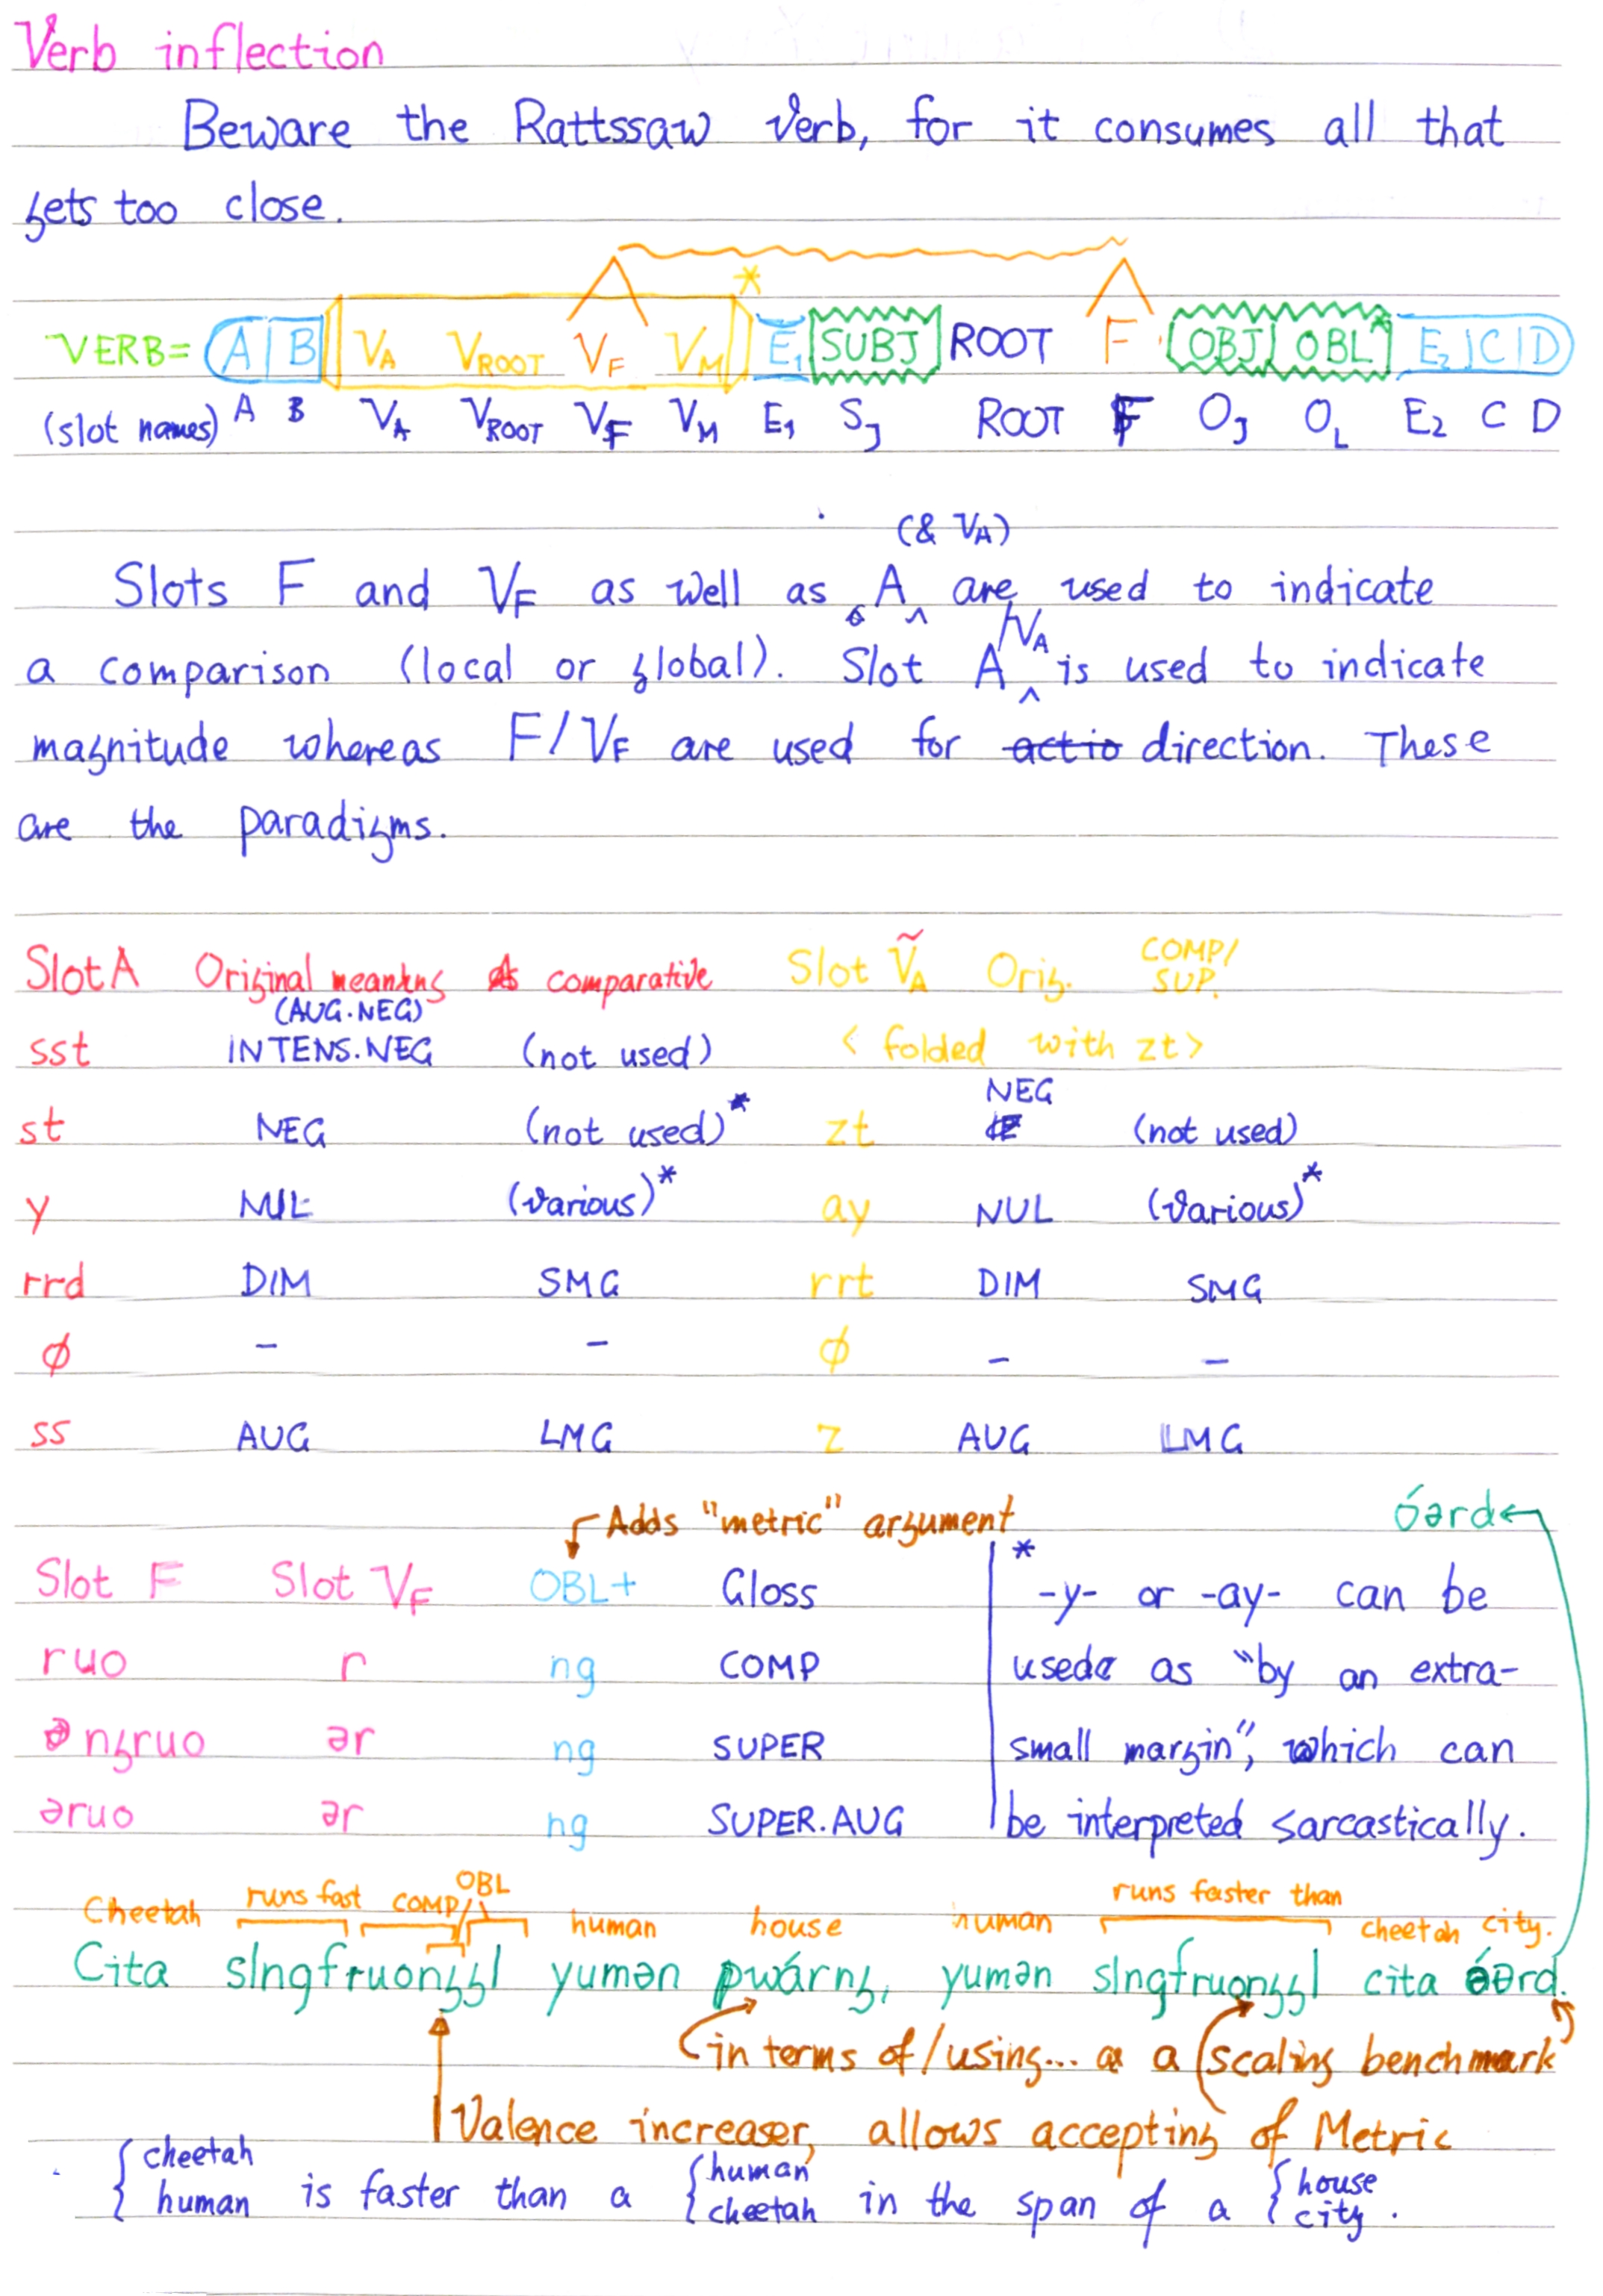 Verb inflection
Beware the Rattssaw verb, for it consumes all that
gets too close.
*
VERB= A B VA VROOT VF VM E1 SUBJ ROOT F OBJ OBL E2 C D
(slot names) A B VA VROOT VF VM E1 SJ ROOT F OJ OL E2 C D
(& VA)
Slots F and VF as well as A ^ are used to indicate
/VA
a comparison (local or global). Slot A ^ is used to indicate
magnitude whereas F/VF are used for actio direction. These
are the paradigms.
Slot A Original meaning As comparative Slot ṼA Orig. COMP/SUP.
(AUG.NEG)
sst INTENS.NEG (not used) < folded with zt >
st NEG (not used)* zt NEG (not used)
y NUL (various)* ay NUL (various)*
rrd DIM SMG rrt DIM SMG
ϕ – – ϕ – –
ss AUG LMG z AUG LMG
Adds "metric" argument óərd
Slot F Slot VF OBL+ Gloss
ruo r ng COMP
ngruo ər ng SUPER
əruo ər ng SUPER.AUG
* -y- or -ay- can be
used as "by an extra-
small margin", which can
be interpreted sarcastically.
Cheetah runs fast COMP/OBL human house human runs faster than cheetah city.
Cita slngfruonggl yumən pwárng, yumən slngfruonggl cita óərd.
in terms of/using... as a scaling benchmark
Valence increaser, allows accepting of Metric
{cheetah human is faster than a {human cheetah in the span of a {house city.